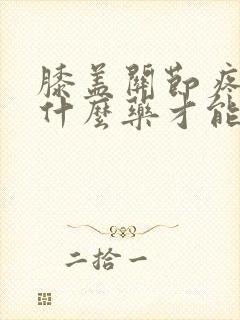 膝盖關節疼
什麼藥才能
二拾一